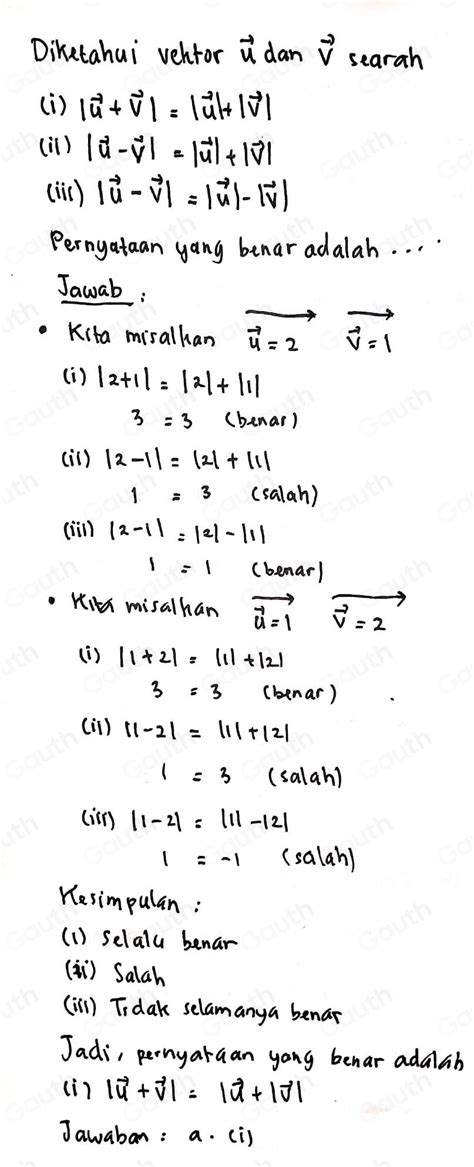 Diketahui vektor u⃗ dan v⃗ searah
(i) |u⃗ + v⃗| = |u⃗|+|v⃗|
(ii) |u⃗ - v⃗| = |u⃗|+|v⃗|
(iii) |u⃗ - v⃗| = |u⃗|-|v⃗|
Pernyataan yang benar adalah ....
Jawab :
• Kita misalkan u⃗ = 2 v⃗ = 1
(i) |2+1| = |2| + |1|
3 = 3 (benar)
(ii) |2-1| = |2| + |1|
1 = 3 (salah)
(iii) |2-1| = |2| - |1|
1 = 1 (benar)
• Kita misalkan u⃗ = 1 v⃗ = 2
(i) |1+2| = |1| + |2|
3 = 3 (benar)
(ii) |1-2| = |1| + |2|
1 = 3 (salah)
(iii) |1-2| = |1| - |2|
1 = -1 (salah)
Kesimpulan :
(i) Selalu benar
(ii) Salah
(iii) Tidak selamanya benar
Jadi, pernyataan yang benar adalah
(i) |u⃗ + v⃗| = |u⃗ + |v⃗|
Jawaban : a. (i)
Gauth